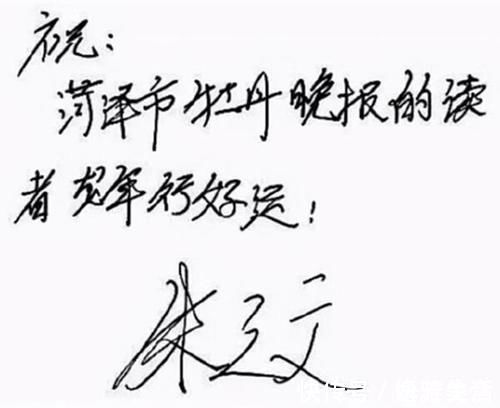 祝：
菏泽市牡丹晚报的读
者龙年行好运！
朱之文
快传号/